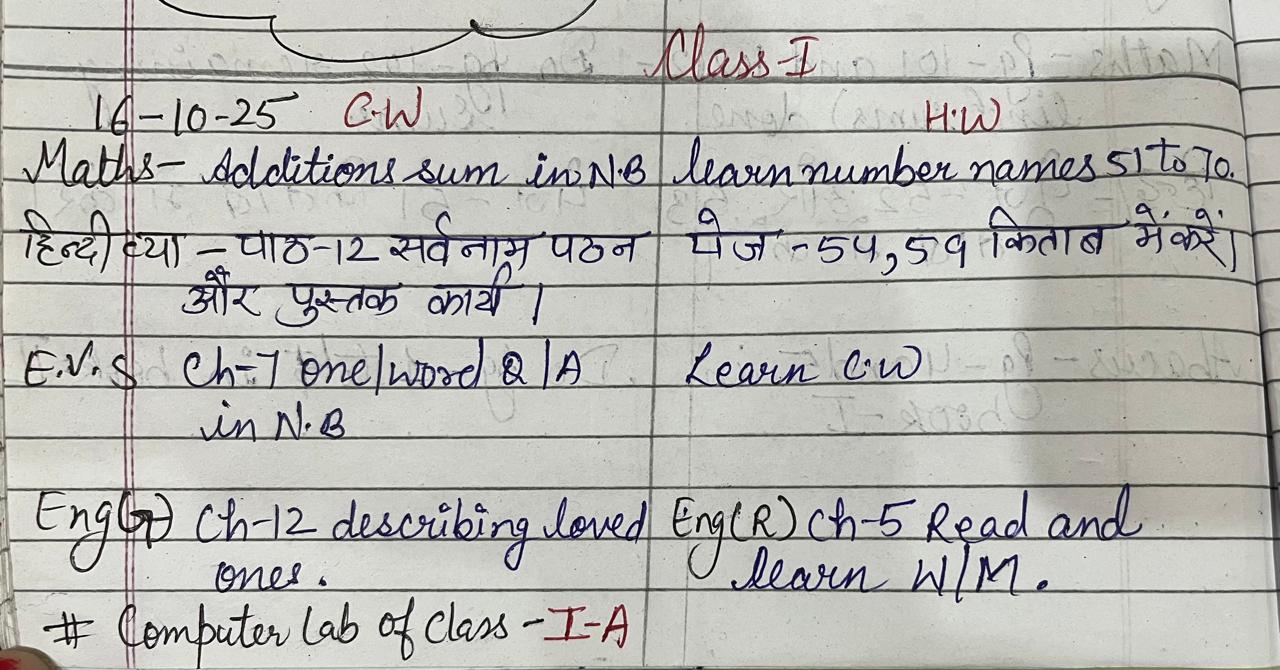 Class-I
16-10-25 C.W H.W
Maths- Additions sum in N.B learn number names 51 to 70.
हिन्दी व्या - पाठ-12 सर्वनाम पठन पेज - 54, 59 किताब में करें।
और पुस्तक कार्य।
E.V.S Ch-7 one/word Q/A Learn C.W
in N.B
Eng(G) Ch-12 describing loved Eng(R) Ch-5 Read and
ones. learn W/M.
# Computer lab of class - I-A